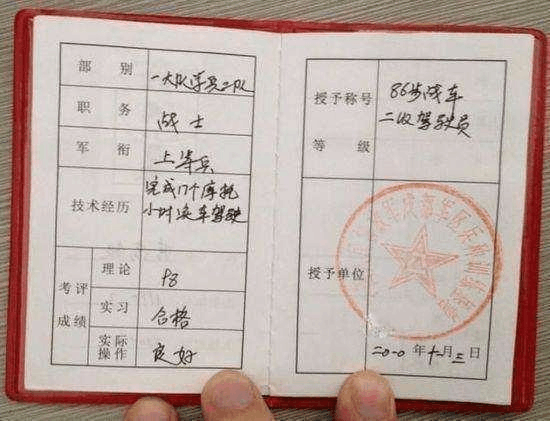 部别 一大队学员二队
职务 战士
军衔 上等兵
技术经历 完成17个摩托
小时装车驾驶
考评成绩
理论 98
实习 合格
实际操作 良好
授予称号 86步战车
等级 二级驾驶员
授予单位
二〇一〇年十一月三日